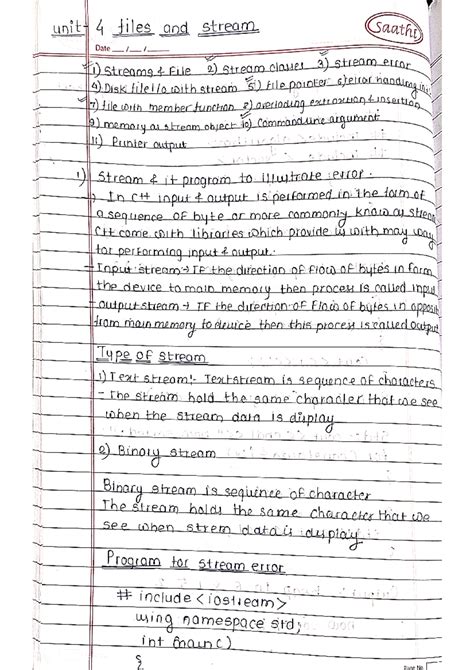 unit- 4 files and stream
Saathi
Date __/__/__
1) Streams & File 2) Stream classes 3) Stream error
4) Disk file i/o with stream 5) file pointer 6) error handling
7) file with member function 8) overloading extraxion & insertion
9) memory as stream object 10) Command line argument
11) Printer output
1) Stream & it program to illustrate error.
In C++ input & output is performed in the form of
a sequence of byte or more commonly know as stream
C++ come with libraries which provide us with may way
for performing input & output.
- Input stream → IF the direction of Flow of bytes in form
the device to main memory then process is called input
- output stream → IF the direction of Flow of bytes in opposit
from main memory to device then this process is called output
Type of stream
1) Text stream:- Text stream is sequence of characters
- The stream hold the same character that we see
when the stream data is display
2) Binary stream
Binary stream is sequence of character
The stream holds the same character that we
see when strem data is display
Program for stream error
# include <iostream>
using namespace std;
int main()
{
Page No.